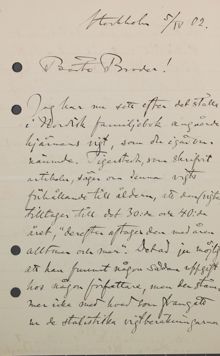 Stockholm 5/IV 02.
Bästa Broder!
Jag har nu sett efter det ställe
i Nordisk familjebok angående
hjärnans vigt, som du igår om-
nämnde. Tigerstedt, som skrifvit
artikeln, säger om denna vigts
förhållande till åldern, att den
tilltager till det 30:de och 40:de
året, "derefter aftager den med
alltmer och mer". Det är ju möjligt
att han funnit någon sådan uppgift
hos någon författare, men den stäm-
mer icke med hvad som framgått
ur de statistiska vigtberäkningarna